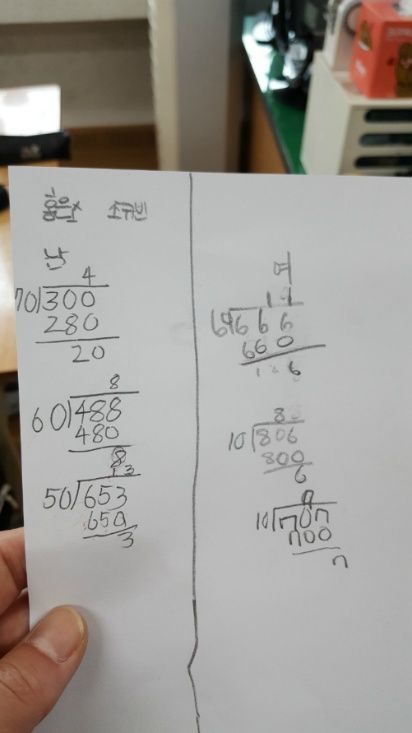 난
4
70)300
280
20
8
60)488
480
8
13
50)653
650
3
여
11
666
660
6
8
10)806
800
6
10)707
700
7